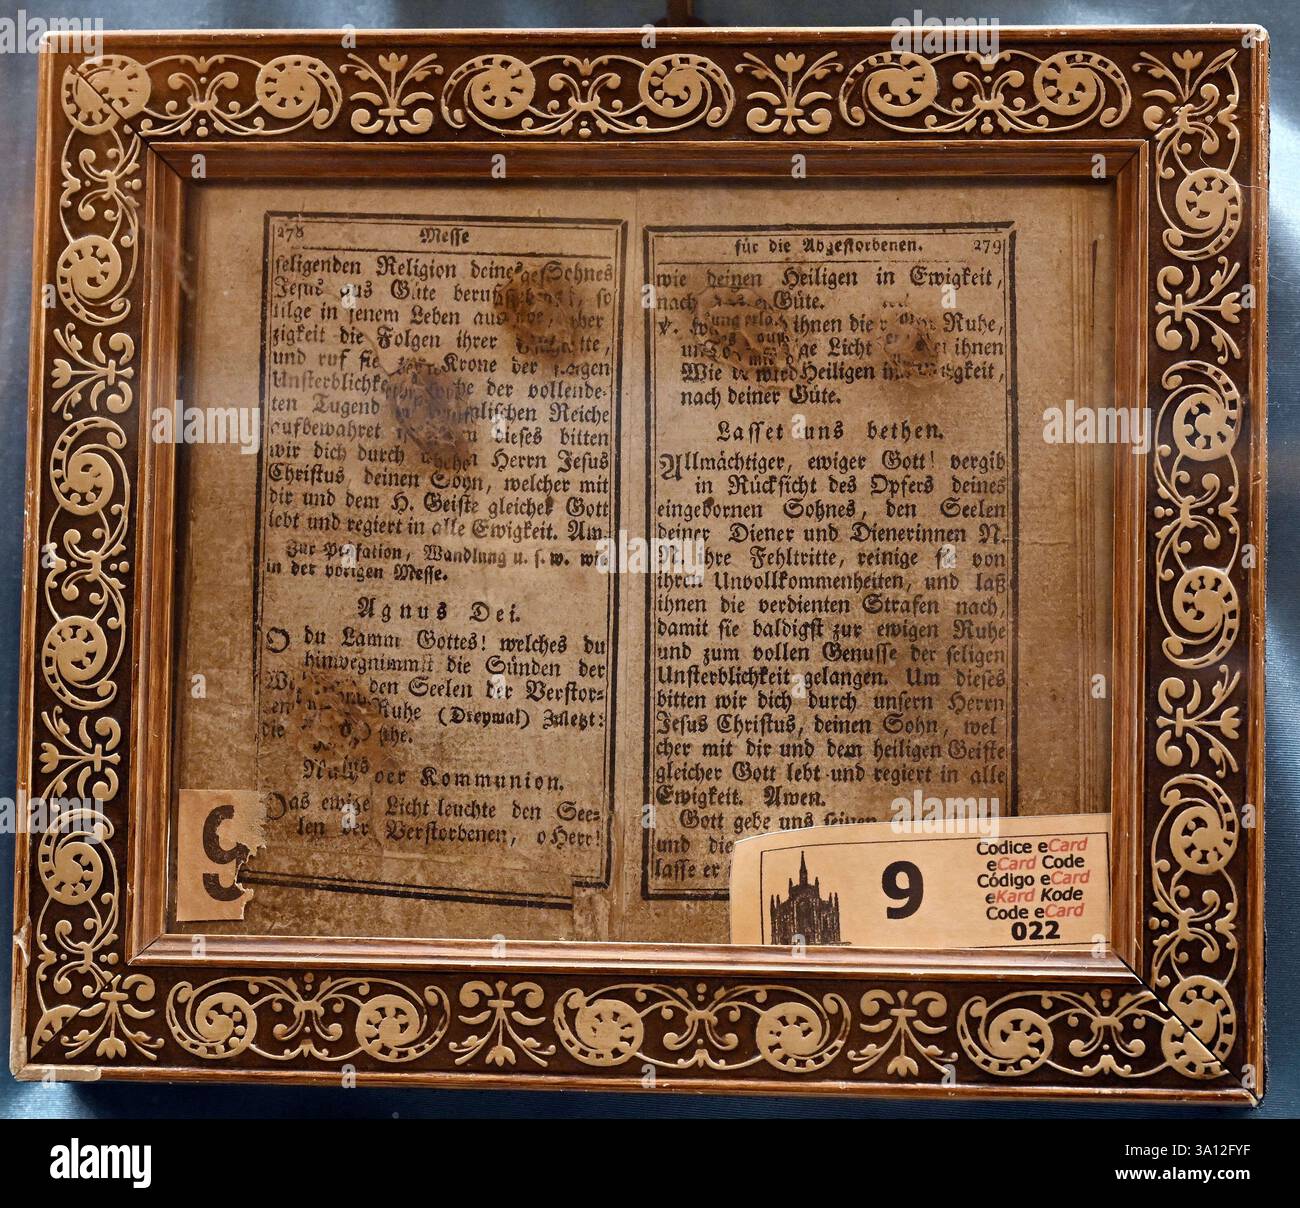 278 Messe
seligenden Religion deines Sohnes
Jesus aus Güte berufen, so
tilge in jenem Leben aus
zigkeit die Folgen ihrer
und ruf sie Krone der
Unsterblichke der vollende-
ten Tugend Reiche
aufbewahret dieses bitten
wir dich durch Herrn Jesus
Christus, deinen Sohn, welcher mit
dir und dem H. Geiste gleicher Gott
lebt und regiert in alle Ewigkeit. Am.
Zur Präfation, Wandlung u. s. w. wie
in der vorigen Messe.
Agnus Dei.
O du Lamm Gottes! welches du
hinwegnimmst die Sünden der
den Seelen der Verstor-
Ruhe (Dreymal) Zuletzt:
die
der Kommunion.
Das ewige Licht leuchte den See-
len der Verstorbenen, o Herr!
für die Abgestorbenen. 279
wie deinen Heiligen in Ewigkeit,
nach Güte.
V. ihnen die Ruhe,
Licht ihnen
Wie Heiligen
nach deiner Güte.
Lasset uns bethen.
Allmächtiger, ewiger Gott! vergib
in Rücksicht des Opfers deines
eingebornen Sohnes, den Seelen
deiner Diener und Dienerinnen N.
N. ihre Fehltritte, reinige sie von
ihren Unvollkommenheiten, und laß
ihnen die verdienten Strafen nach,
damit sie baldigst zur ewigen Ruhe
und zum vollen Genusse der seligen
Unsterblichkeit gelangen. Um dieses
bitten wir dich durch unsern Herrn
Jesus Christus, deinen Sohn, wel
cher mit dir und dem heiligen Geiste
gleicher Gott lebt und regiert in alle
Ewigkeit. Amen.
Gott gebe uns seinen
und die
lasse er
9
9
Codice eCard
eCard Code
Código eCard
eKard Kode
Code eCard
022
alamy
Image ID: 3A12FYF
www.alamy.com